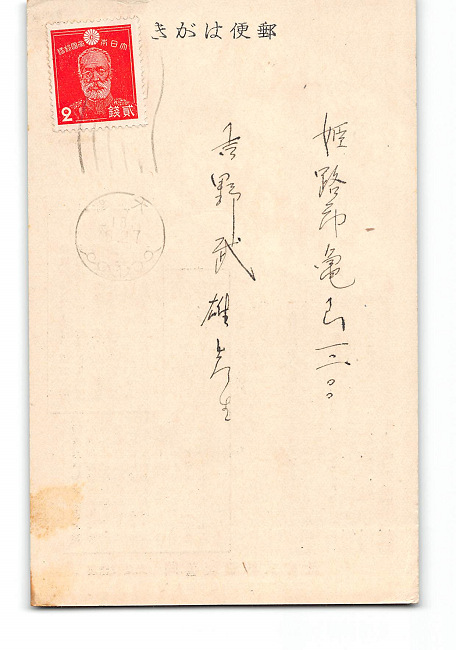 きがは便郵
大日本帝國郵便
2
貳錢
姫路市亀山一三〇〇
吉野武雄先生